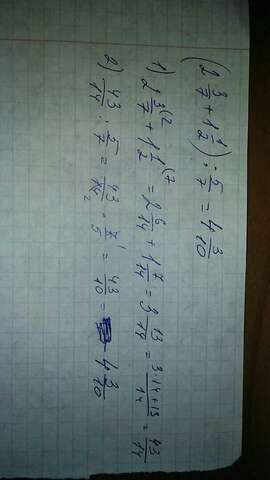 (2 3/7 + 1 1/2) : 5/7 = 4 3/10
1) 2 3/7 (2 + 1 1/2 (7 = 2 6/14 + 1 7/14 = 3 13/14 = 3·14+13/14 = 43/14
2) 43/14 : 5/7 = 43/14 2 · 7 1/5 = 43/10 = 4 3/10